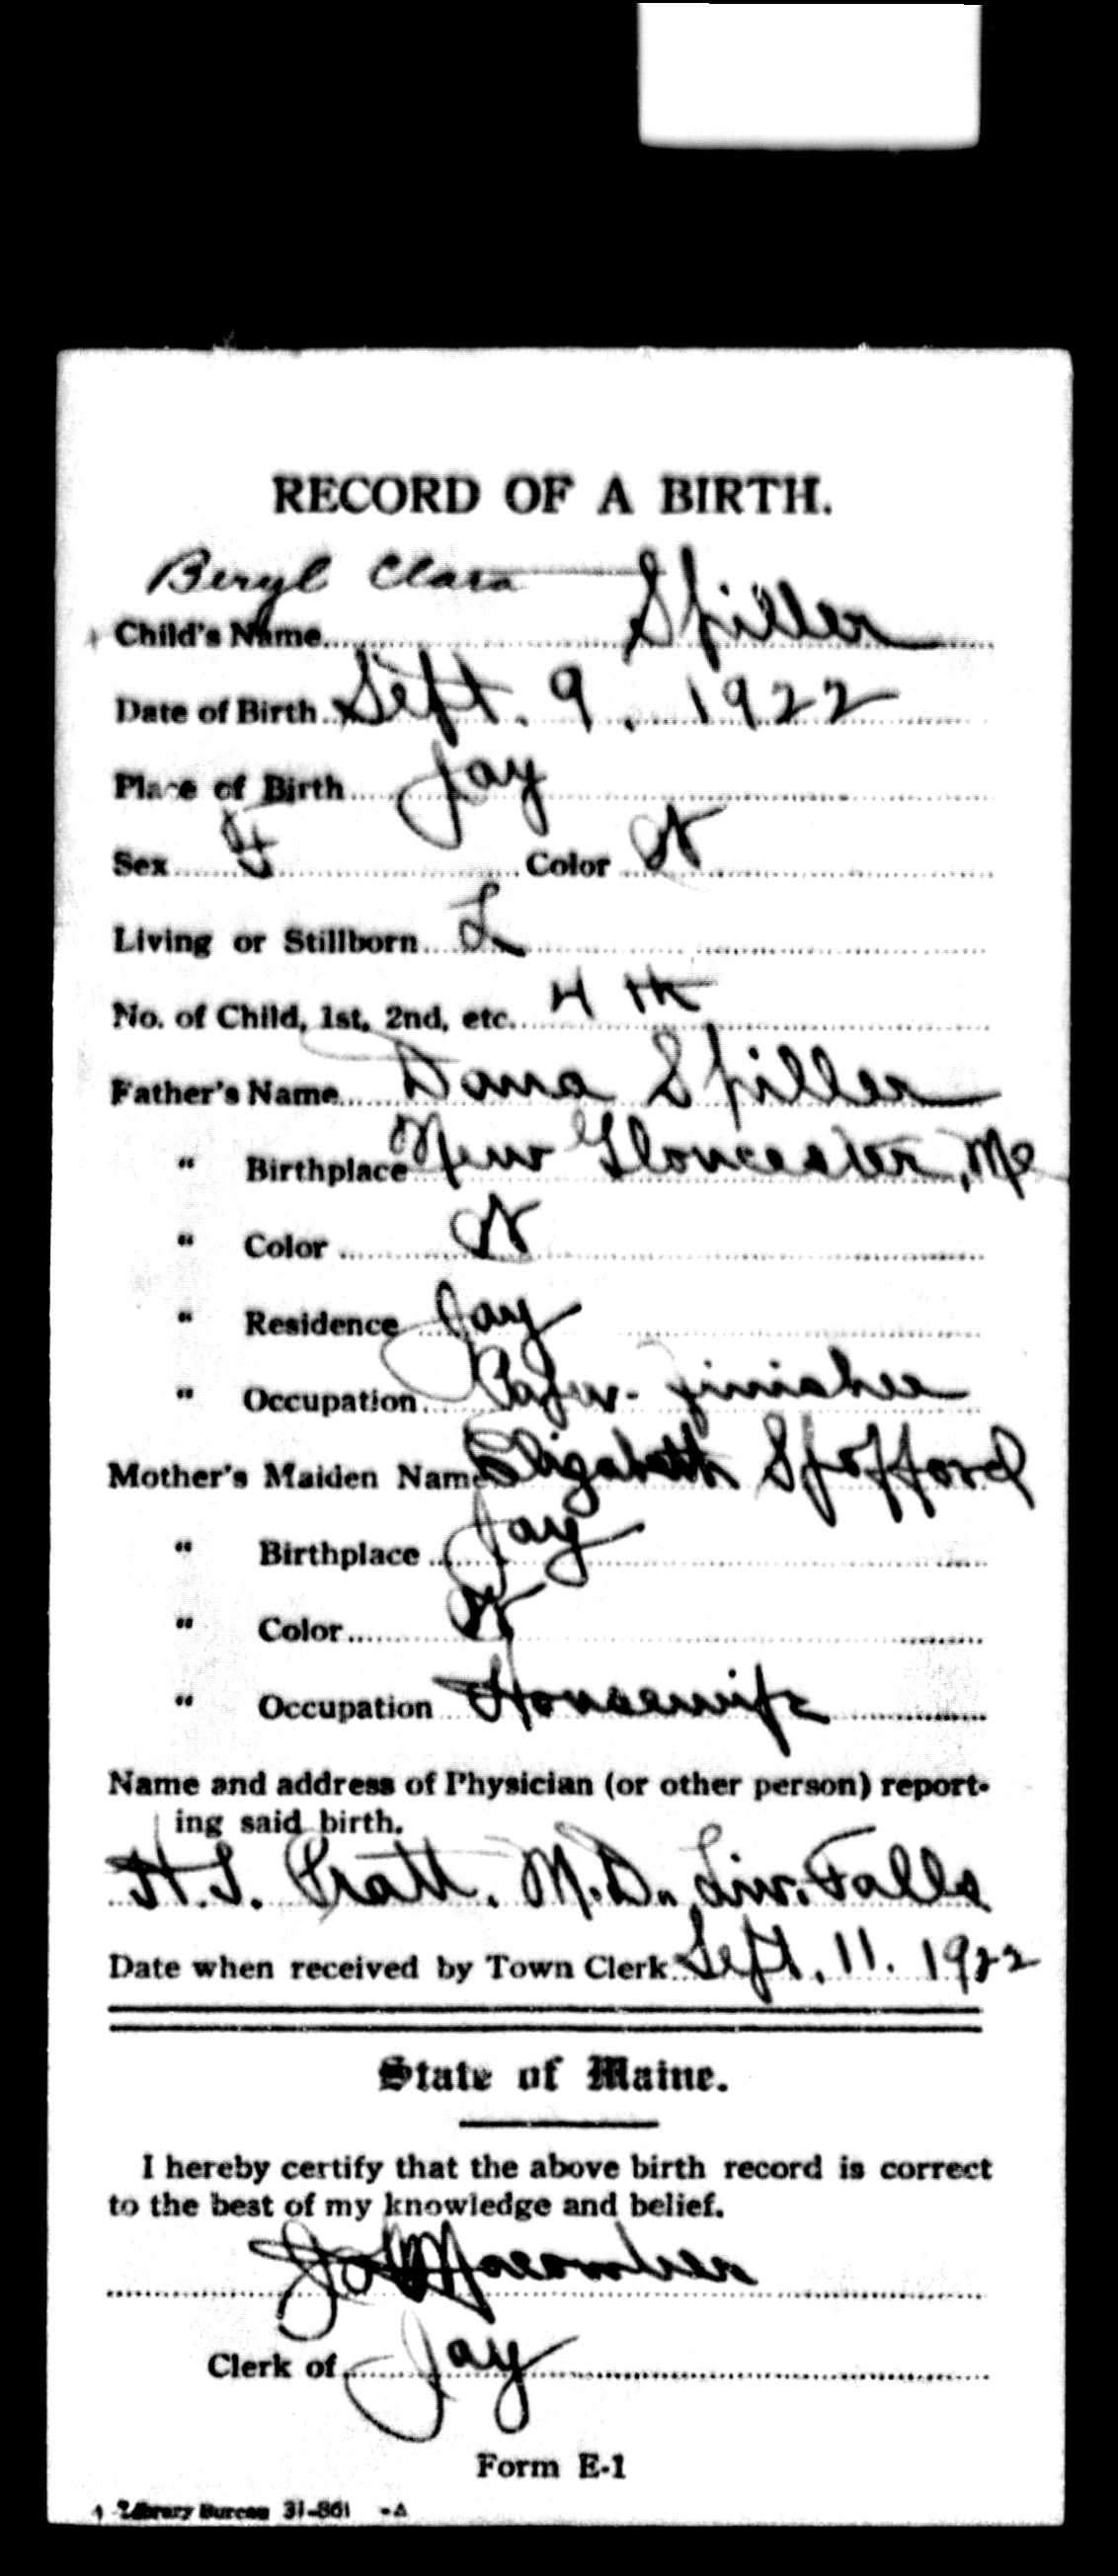 RECORD OF A BIRTH.
Beryl Clara Spiller
Child's Name
Date of Birth Sept. 9, 1922
Place of Birth Jay
Sex F Color W
Living or Stillborn L
No. of Child, 1st, 2nd, etc. 4 th
Father's Name Dana Spiller
" Birthplace New Gloucester, Me
" Color W
" Residence Jay
" Occupation Paper-finisher
Mother's Maiden Name Elizabeth Spofford
" Birthplace Jay
" Color W
" Occupation Housewife
Name and address of Physician (or other person) report-
ing said birth.
H.S. Pratt. M.D., Liv. Falls
Date when received by Town Clerk Sept. 11. 1922
State of Maine.
I hereby certify that the above birth record is correct
to the best of my knowledge and belief.
Macomber
Clerk of Jay
Form E-1
Library Bureau 31-861